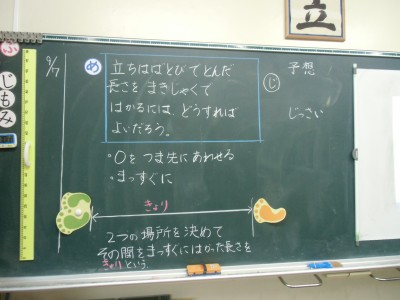 立
ふ
じ
も
み
9/7
め
立ちはばとびでとんだ
長さをまきじゃくで
はかるには、どうすれば
よいだろう。
◦0をつま先にあわせる
◦まっすぐに
きょり
2つの場所を決めて
その間をまっすぐにはかった長さを
きょりという。
じ
予想
じっさい